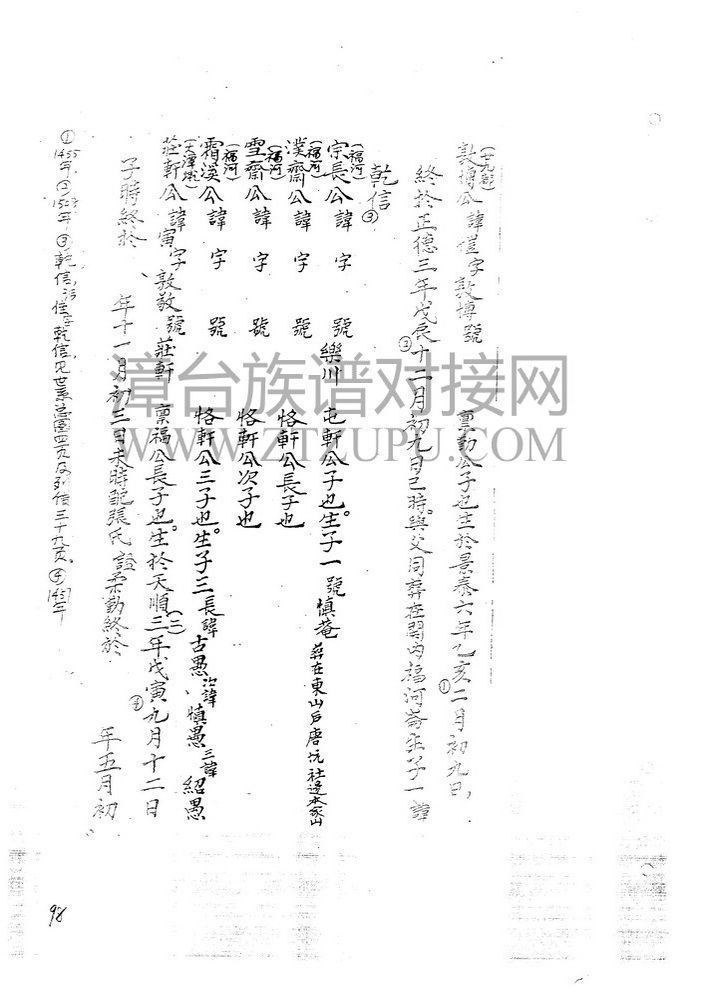 敦博公諱僅字敦博號 禀勤公子也生於景泰六年乙亥①二月初九日,
終於正德三年戊辰②十二月初九日巳時。與父同葬在關內福河崙生子一諱
乾信③
(福河)
宗長公諱 字 號樂川 屯軒公子也。生子一 號慎菴 葬在東山戶唐坑社邊本家山
(福河)
漢齋公諱 字 號 恪軒公長子也
(福河)
雪齋公諱 字 號 恪軒公次子也
(福河)
霜溪公諱 字 號 恪軒公三子也。生子三長諱古愚次諱慎愚三諱紹愚
莊軒公諱寅字敦敬號莊軒 禀福公長子也。生於天順三(二)年戊寅④九月十二日
子時終於 年十一月初三日未時配張氏 證柔勤終於 年五月初
①1455年,②1508年③乾信,見世系总圖四页及 三十九页。④1458年
98
漳台族谱对接网
WWW.ZTZUPU.COM